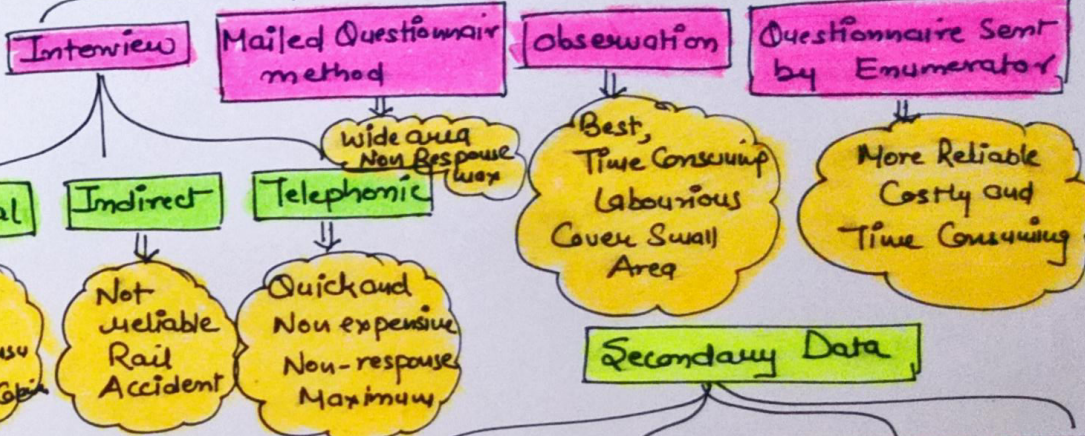 Interview
Mailed Questionnair
method
Observation
Questionnaire Sent
by Enumerator
Wide area
Non Response
Max
Best,
Time Consuming
Labourious
Cover Small
Area
More Reliable
Costly and
Time Consuming
al
Indirect
Telephonic
Not
reliable
Rail
Accident
Quick and
Non expensive
Non-response
Maximum
Secondary Data